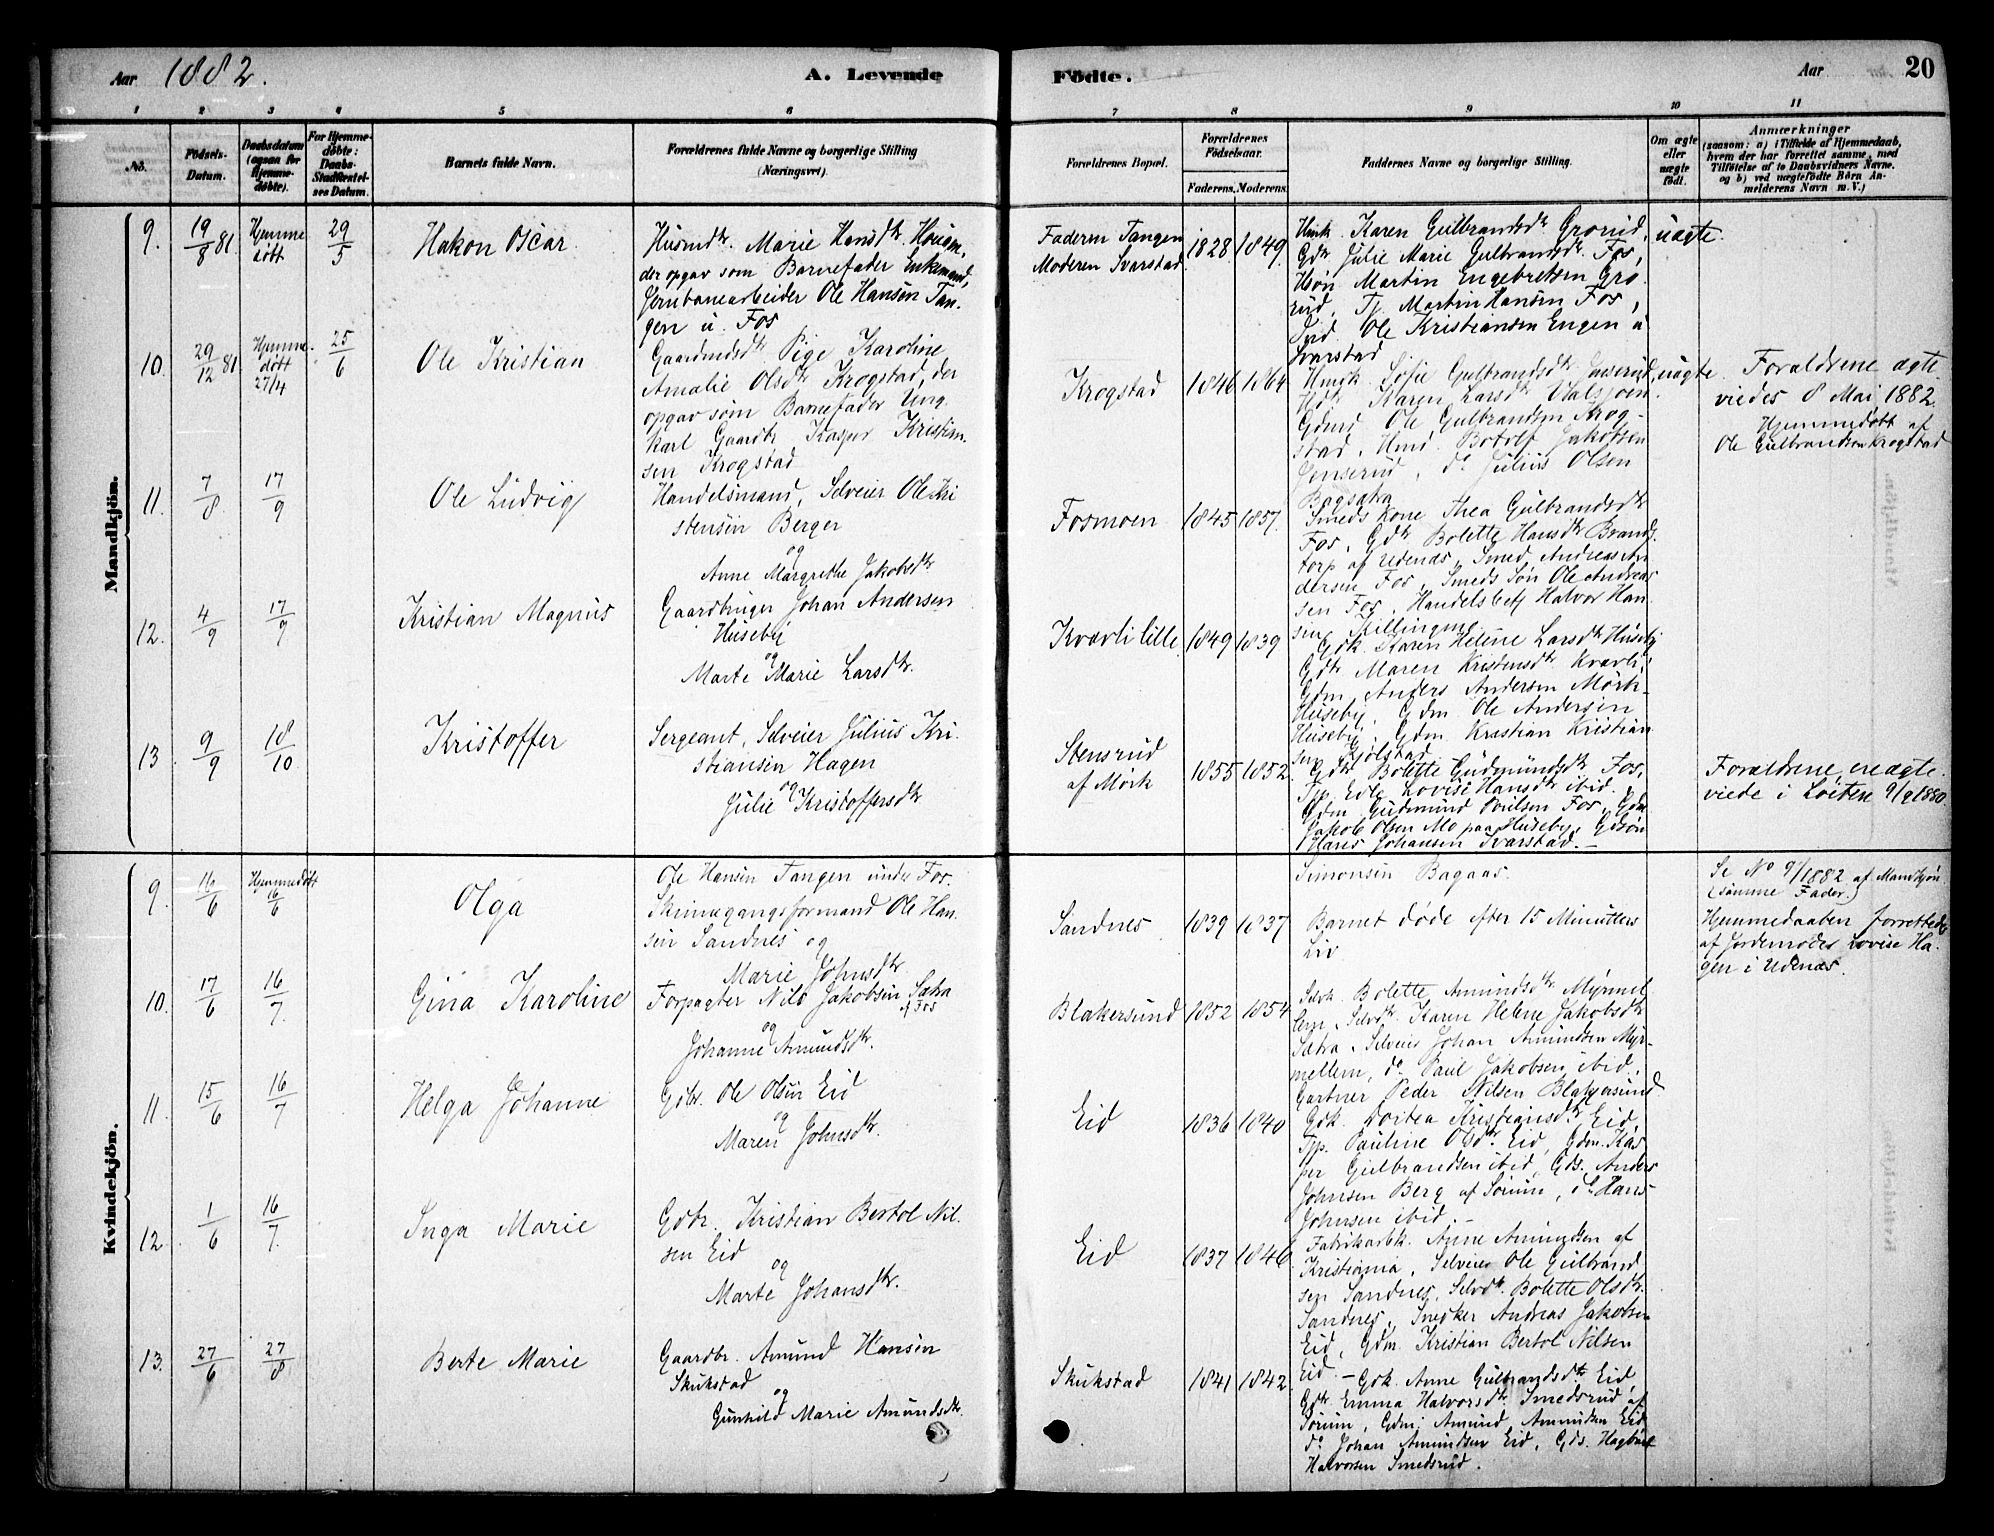 Aar 1882. A. Levende Födte. Aar 20
1 2 3 4 5 6 7 8 9 10 11
No. Födsels-Datum. Daabsdatum (ogsaa for Hjemme-döbte). For Hjemme-döbte: Daabs-Stadfæstel-ses Datum. Barnets fulde Navn. Forældrenes fulde Navne og borgerlige Stilling (Næringsvei). Forældrenes Bopæl. Forældrenes Födselsaar. Faderens. Moderens. Faddernes Navne og borgerlige Stilling. Om ægte eller uægte födt. Anmærkninger (saasom: a) i Tilfælde af Hjemmedaab, hvem der har forrettet samme, med Tilföielse af to Daabsvidners Navne, og b) ved uægtefödte Börn Anmelderens Navn m. V.)
Mandkjön.
9. 19/8 81 Hjemme døbt 29/5 Hakon Oscar
Husmdtr. Marie Hansdtr.
der opgav som Barnefader Enkemand,
Jernbanearbeider Ole Hansen Tan-
gen u. Fos
Faderen Tangen
Moderen Svarstad
1828 1849
Hmk. Karen Gulbrandsdtr Grorud,
Gdtr Julie Marie Gulbrandsdtr Fos,
Hsøn Martin Engebretsen Gro
rud, Tj. Martin Hansen Fos,
Ole Kristiansen Engen u
Svarstad
uægte.
10. 29/12 81 Hjemme døbt 27/4 25/6 Ole Kristian
Gaardmdsdtr Pige Karoline
Amalie Olsdtr Krogstad, der
opgav som Barnefader Ung
karl Gaardbr Kasper Kristian
sen Krogstad
Krogstad 1846 1864
Hmk. Sofie Gulbrandsdtr Jenserud,
Karen Larsdtr Valsjøen
Gdmd Ole Gulbrandsen Krog-
stad, Hmd. Botolf Jakobsen
Jenserud, do Julius Olsen
Bogsætra
uægte
Forældrene ægte
viedes 8 Mai 1882
Hjemmedøbt af
Ole Gulbrandsen Krogstad
11. 7/8 17/9 Ole Ludvig
Handelsmand, Selveier Ole Kri
stensen Berger
og
Anne Margrethe Jakobsdtr
Fosmoen 1845 1857.
Smeds Kone Thea Gulbrandsdtr
Fos, Gdtr Bolette Hansdtr Brands
torp af Udenæs, Smed Andreas An
dersen Fos, Smeds Søn Ole Andreas
sen Fos, Handelsbetj Halvor Han
sen
12. 4/9 17/9 Kristian Magnus
Gaardbruger Johan Andersen
Huseby
og
Marte Marie Larsdtr.
Kværli lille 1849 1839
Gdk. Karen Helene Larsdtr Huseby
Gdtr Maren Kristensdtr Kværli,
Gdm Anders Andersen Mørk-
Huseby, Gdm Ole Andersen
Huseby, Gdm Kristian Kristian
sen Kjølstad
13 9/9 18/10 Kristoffer
Sergeant, Selveier Julius Kri-
stiansen Hagen
og
Julie Kristoffersdtr
Stensrud
af Mørk
1855 1852
Gdtr Bolette Gudmundsdtr Fos,
Tjp. Edle Lovise Hansdtr ibid.
Gdm Gudmund Poulsen Fos, Gdm
Jakob Olsen Mo paa Huseby, Gdsøn
Hans Johansen Svarstad. —
Forældrene ere ægte-
viede i Løiten 9/9 1880
Kvindekjön.
9. 16/6 Hjemmedøbt 16/6 Olga
Ole Hansen Tangen under Fos.
Skinnegangsformand Ole Han
sen Sandnes og
Marie Johnsdtr
Sandnes 1839 1837
Simonsen Bagaas.
Barnet døde efter 15 Minutters
Liv
Se No 9/1882 af Mandkjøn
(samme Fader.)
Hjemmedaaben forrettedes
af Jordemoder Lovise Ha-
gen i Udenæs.
10. 17/6 16/7. Gina Karoline
Forpagter Nils Jakobsen Sætra af Fos
og
Johanne Amundsdtr.
Blakersund 1852 1854
Selvk. Bolette Amundsdtr Myrmel
lem, Selvdtr. Karen Helene Jakobsdtr
Sætra, Selveier Johan Amundsen Myr-
mellem, do Paul Jakobsen ibid,
Gartner Peder Nilsen Blakersund
11. 15/6 16/7 Helga Johanne
Gdbr. Ole Olsen Eid
og
Maren Johnsdtr.
Eid 1836 1840
Gdk. Dortea Kristiansdtr Eid,
Tjp. Pauline Olsdtr Eid, Gdm. Kas
per Gulbrandsen ibid, Gds. Anders
Johnsen Berg af Sørum, do Hans
Johnsen ibid. —
12. 1/6 16/7. Inga Marie
Gdbr. Kristian Bertol Nil-
sen Eid
og
Marte Johansdtr.
Eid 1837 1846
Fabrikarbk. Anne Amundsen af
Kristiania, Selveier Ole Gulbrand
sen Sandnes, Selvdtr. Bolette Olsdtr.
Sandnes, Snedker Andreas Jakobsen
Eid, Gdm Kristian Bertol Nilsen
Eid. —
13. 27/6 27/8 Berte Marie
Gaardbr. Amund Hansen
Skukstad
og
Gunhild Marie Amundsdtr.
Skukstad 1841 1842
Gdk. Anne Gulbrandsdtr Eid,
Gdtr Emma Halvorsdtr Smedsrud af
Sørum, Gdm Amund Amundsen Eid,
do Johan Amundsen Eid, Gds. Hagbart
Halvorsen Smedsrud.